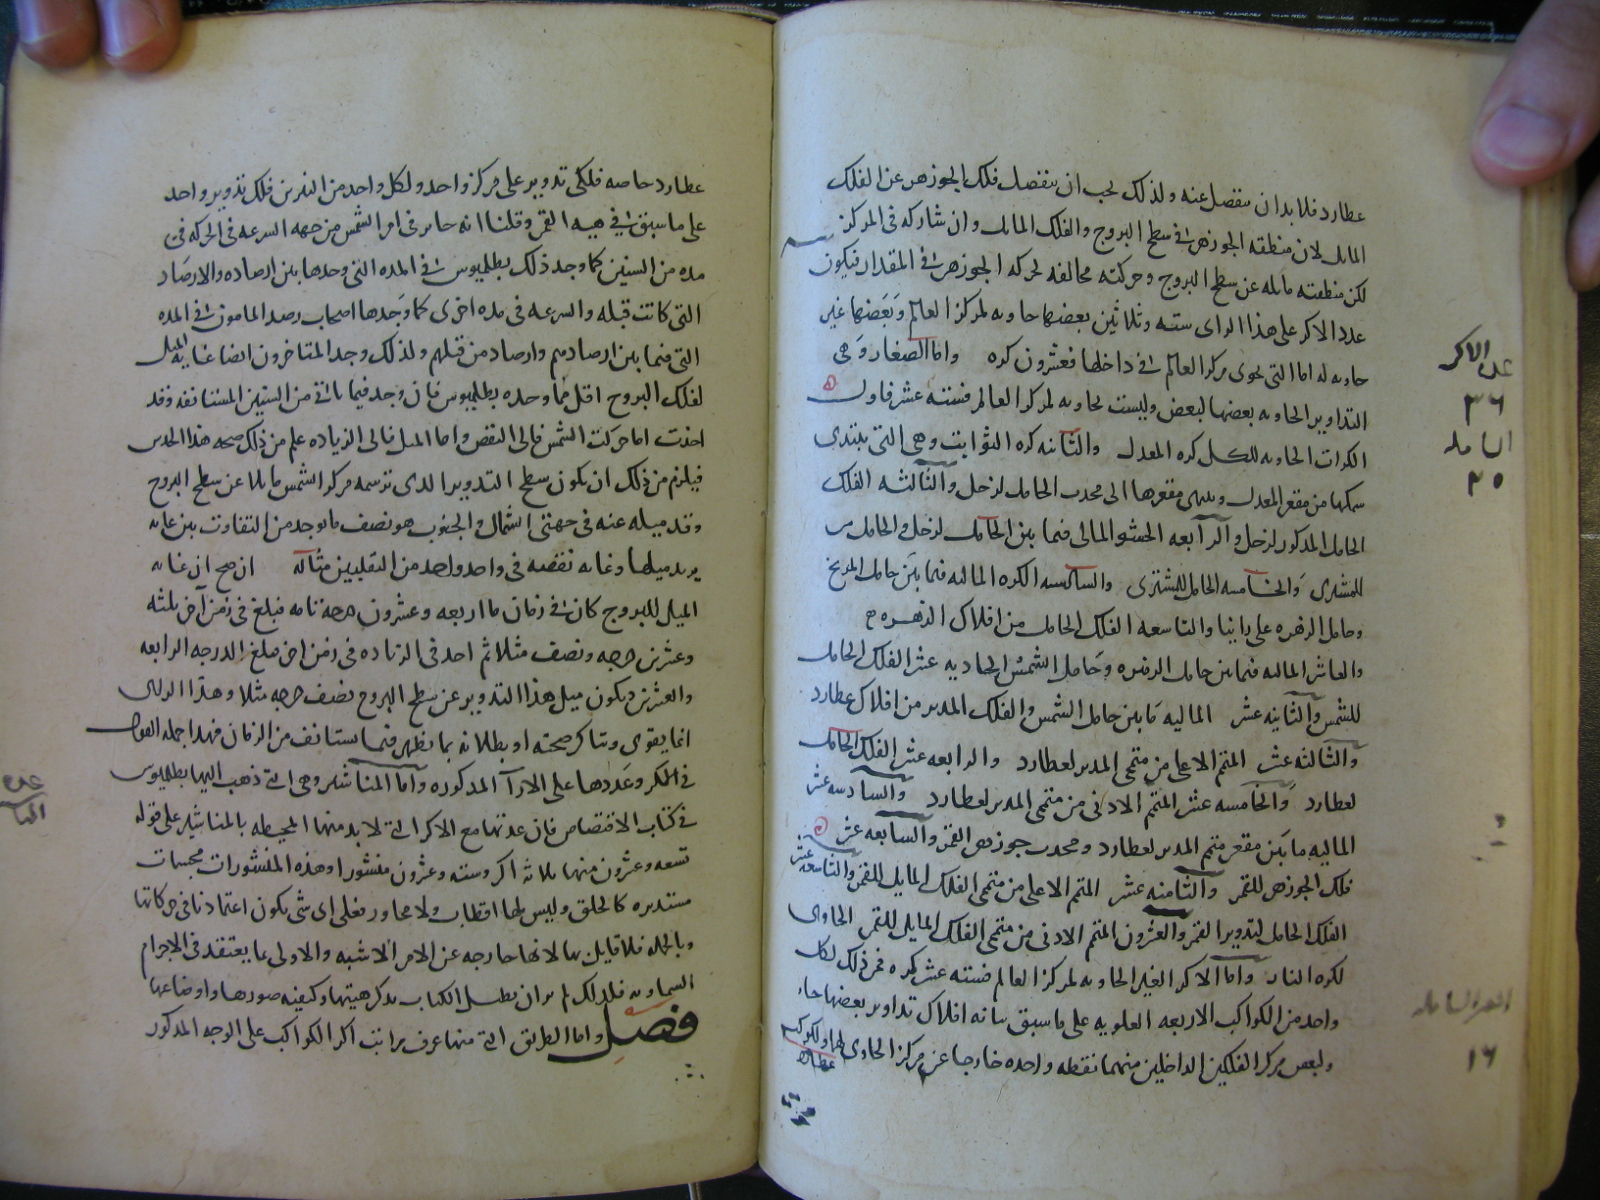 عطارد فلا بد ان ينفصل عنه ولذلك يجب ان ينفصل فلك الجوزهر عن الفلك
المايل لان منطقه الجوزهر في سطح البروج والفلك المايل وان شاركه في المركز
لكن منطقته مايله عن سطح البروج وحركته مخالفه لحركه الجوزهر في المقدار فيكون
عدد الاكر على هذا الراى سته وثلاثين بعضها حاويه لمركز العالم وبعضها غير
حاويه له اما التى تحوى مركز العالم في داخلها فعشرون كره واما الصغار وهى
التداوير الحاويه بعضها لبعض وليست بحاويه لمركز العالم فستة عشر فاول
الكرات الحاويه للكل كره المعدل والثانيه كره الثوابت وهى التى يبتدى
سمكها من مقعر المعدل وينتهى مقعرها الى محدب الحامل لزحل والثالثه الفلك
الحامل المذكور لزحل والرابعه الحشو المالى فيما بين الحامل لزحل والحامل
للمشترى والخامسه الحامل للمشترى والسادسه الكره الماليه فيما بين حامل المريخ
وحامل الزهره على راينا والتاسعه الفلك الحامل من افلاك الزهره
والعاشر الماليه فيما بين حامل الزهره وحامل الشمس الحاديه عشر الفلك الحامل
للشمس والثانيه عشر الماليه ما بين حامل الشمس والفلك المدير من افلاك عطارد
والثالثه عشر المتمم الاعلى من متممى المدير لعطارد والرابعه عشر الفلك الحامل
لعطارد والخامسه عشر المتمم الادنى من متممى المدير لعطارد والسادسه عشر
الماليه ما بين مقعر متمم المدير لعطارد ومحدب جوزهر القمر والسابعه عشر
فلك الجوزهر للقمر والثامنه عشر المتمم الاعلى من متممى الفلك المايل للقمر والتاسعه عشر
الفلك الحامل لتدوير القمر والعشرون المتمم الادنى من متممى الفلك المايل للقمر الحاوى
لكره النار واما الاكر الغير الحاويه لمركز العالم فستة عشر كره فمن ذلك لكل
واحد من الكواكب الاربعه العلويه على ما سبق بيانه افلاك تداوير بعضها حاو
ولبعض مركز الفلكين الداخلين منهما نقطه واحده خارجا عن مركز الحاوى لهما ولكوكب
عطارد
عدد الاكر
٣٦
الشامله
٢٠
الغير الشامله
١٦
عطارد خاصه فلكى تدوير على مركز واحد ولكل واحد من النيرين فلك تدوير واحد
على ما سبق في هيه القمر وقلنا انه جايز في امر الشمس من جهه السرعه في الحركه في
مده من السنين كما وجد ذلك بطلميوس في المده التى وجدها بين ارصاده والارصاد
التى كانت قبله والسرعه في مده اخرى كما وجدها اصحاب رصد المامون في المده
التى فيما بين ارصادهم وارصاد من قبلهم ولذلك وجد المتاخرون ايضا غايه الميل
لفلك البروج اقل مما وجده بطلميوس فان وجد فيما ياتى من السنين المستانفه وقد
اخذت اما حركت الشمس فالى النقص واما الميل فالى الزياده علم من ذلك صحه هذا الحدس
فيلزم من ذلك ان يكون سطح التدوير الذى ترسمه مركز الشمس مايلا عن سطح البروج
وقد ميله عنه في جهتى الشمال والجنوب هو نصف ما يوجد من التفاوت بين غايه
يزيد ميلها وغايه نقصه في واحد واحد من التقلبين مثاله ان صح ان غايه
الميل للبروج كان في زمان ما اربعه وعشرون درجه تامه فبلغ في زمن آخر ثلثه
وعشرين درجه ونصف مثلا ثم اخذ في الزياده في زمن اخر فبلغ الدرجه الرابعه
والعشرين فيكون ميل هذا التدوير عن سطح البروج نصف درجه مثلا وهذا الراى
انما يقوى ويتاكد صحته او بطلانه بما يظهر فيما يستانف من الزمان فهذا جمله القول
في الاكر وعددها على الارآ المذكوره واما المناشير وهى التى ذهب اليها بطلميوس
في كتاب الاقتصاص فان عدتها مع الاكر التى لا بد منها المحيطه بالمناشير على قوله
تسعه وعشرون منها ثلاثه اكر وسته وعشرون منشورا وهذه المنشورات مجسمات
مستديره كالحلق وليس لها اقطاب ولا محاور فعلى اى شى يكون اعتمادنا في حركاتها
وبالجمله فلا قايل بها لانها خارجه عن الامر الاشبه والاولى بما يعتقد في الاجرام
السماويه فلذلك لم نر ان نطيل الكتاب بذكر هيئتها وكيفيه صورها واوضاعها
فصل واما الطريق التى منها عرف مراتب اكر الكواكب على الوجه المذكور
عدد
المناشير